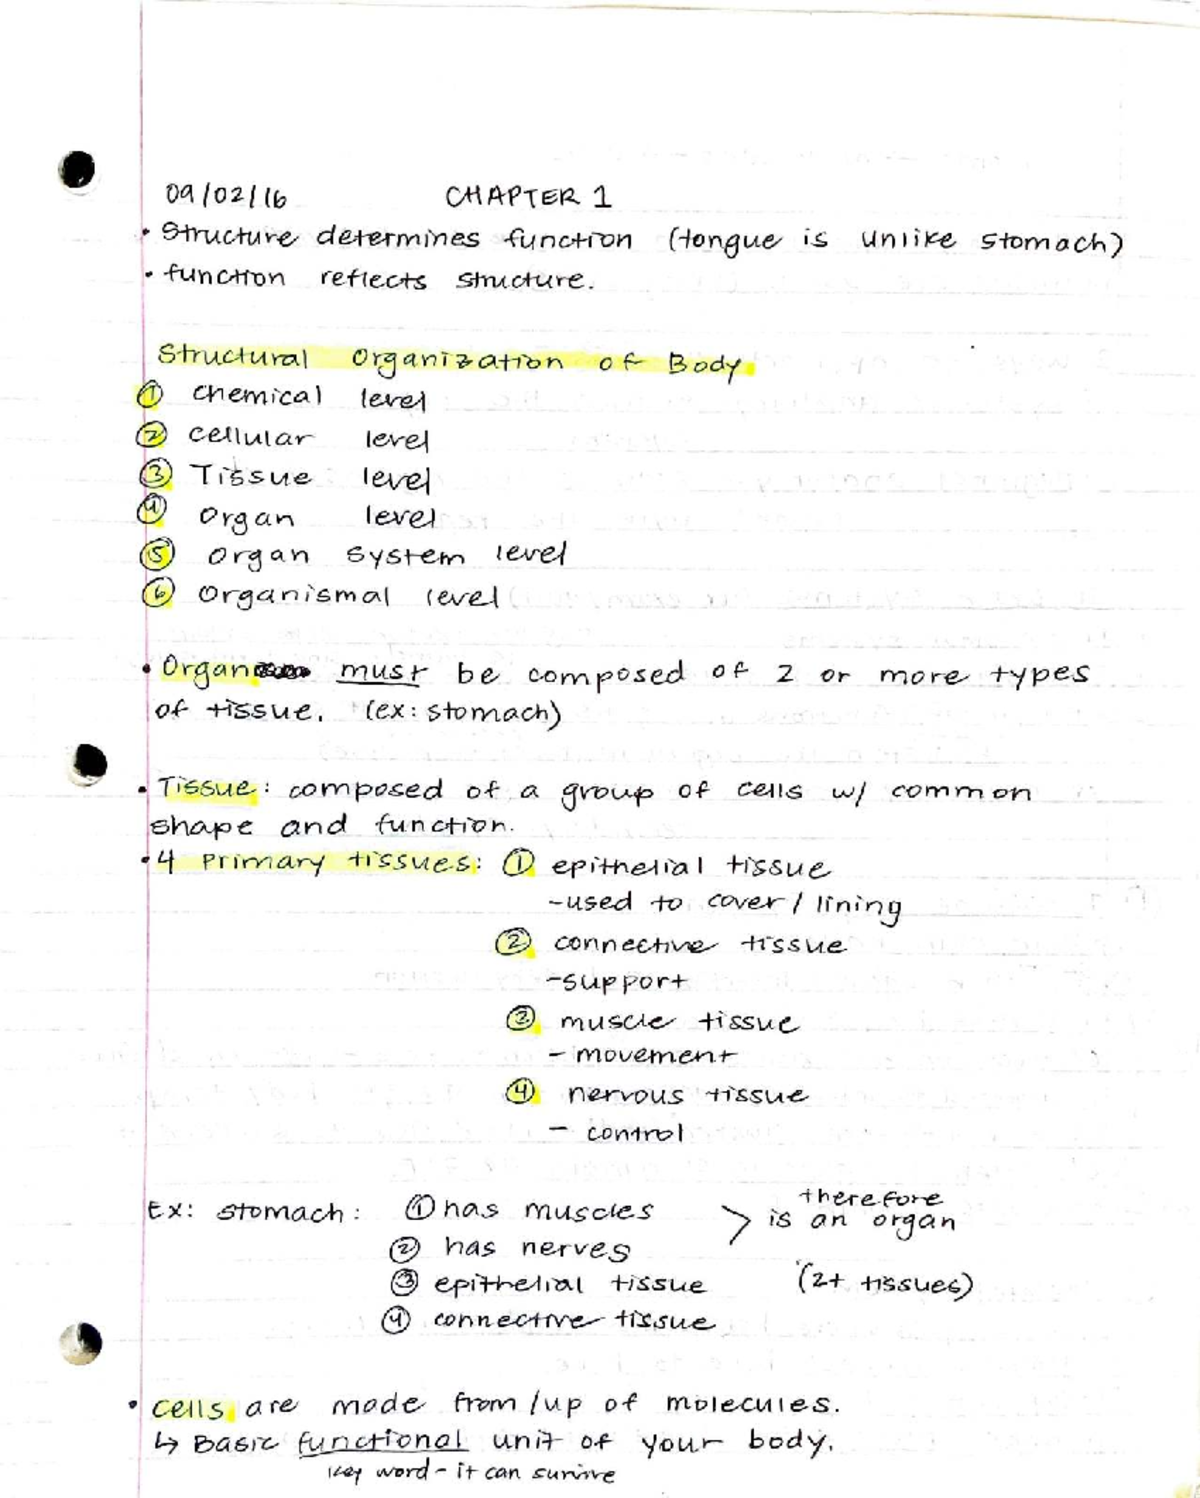 09/02/16 CHAPTER 1
• Structure determines function (tongue is unlike stomach)
• function reflects structure.
Structural Organization of Body
① chemical level
② cellular level
③ Tissue level
④ organ level
⑤ organ system level
⑥ Organismal level
• Organ must be composed of 2 or more types
of tissue. (ex: stomach)
• Tissue: composed of a group of cells w/ common
shape and function.
• 4 Primary tissues: ① epithelial tissue
-used to cover/lining
② connective tissue
-support
③ muscle tissue
- movement
④ nervous tissue
- control
Ex: stomach: ① has muscles > therefore
is an organ
② has nerves
③ epithelial tissue (2+ tissues)
④ connective tissue
• cells are made from/up of molecules.
↳ Basic functional unit of your body.
key word - it can survive